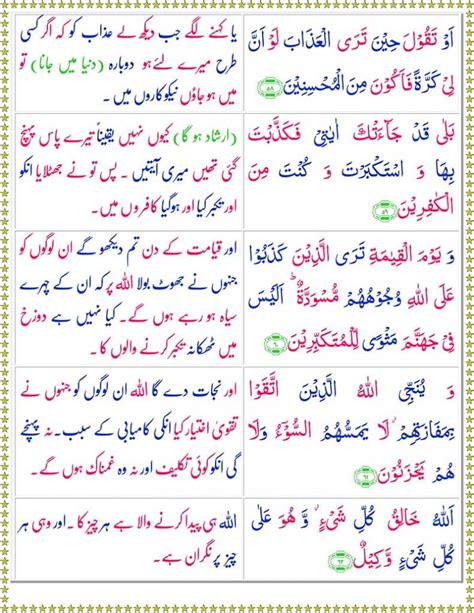 اَوْ تَقُوْلَ حِيْنَ تَرَى الْعَذَابَ لَوْ اَنَّ
لِيْ كَرَّةً فَاَكُوْنَ مِنَ الْمُحْسِنِيْنَ ۵۸
یا کہنے لگے جب دیکھ لے عذاب کو کہ اگر کسی
طرح میرے لئے ہو دوبارہ (دنیا میں جانا) تو
میں ہو جاؤں نیکوکاروں میں ۔
بَلٰى قَدْ جَآءَتْكَ اٰيٰتِيْ فَكَذَّبْتَ
بِهَا وَ اسْتَكْبَرْتَ وَ كُنْتَ مِنَ
الْكٰفِرِيْنَ ۵۹
(ارشاد ہو گا) کیوں نہیں یقیناً تیرے پاس پہنچ
گئی تھیں میری آیتیں ۔ پس تو نے جھٹلایا انکو
اور تکبر کیا اور ہوگیا کافروں میں ۔
وَ يَوْمَ الْقِيٰمَةِ تَرَى الَّذِيْنَ كَذَبُوْا
عَلَى اللّٰهِ وُجُوْهُهُمْ مُّسْوَدَّةٌ ؕ اَلَيْسَ
فِيْ جَهَنَّمَ مَثْوًى لِّلْمُتَكَبِّرِيْنَ ۶۰
اور قیامت کے دن تم دیکھو گے ان لوگوں کو
جنہوں نے جھوٹ بولا اللہ پر کہ ان کے چہرے
سیاہ ہو رہے ہوں گے ۔ کیا نہیں ہے دوزخ
میں ٹھکانہ تکبر کرنے والوں کا ۔
وَ يُنَجِّي اللّٰهُ الَّذِيْنَ اتَّقَوْا
بِمَفَازَتِهِمْ ؗ لَا يَمَسُّهُمُ السُّوْٓءُ وَلَا
هُمْ يَحْزَنُوْنَ ۶۱
اور نجات دے گا اللہ ان لوگوں کو جنہوں نے
تقویٰ اختیار کیا انکی کامیابی کے سبب ۔ نہ پہنچے
گی انکو کوئی تکلیف اور نہ وہ غمناک ہوں گے ۔
اَللّٰهُ خَالِقُ كُلِّ شَيْءٍ ؗ وَّ هُوَ عَلٰى
كُلِّ شَيْءٍ وَّكِيْلٌ ۶۲
اللہ ہی پیدا کرنے والا ہے ہر چیز کا ۔ اور وہی ہر
چیز پر نگران ہے ۔